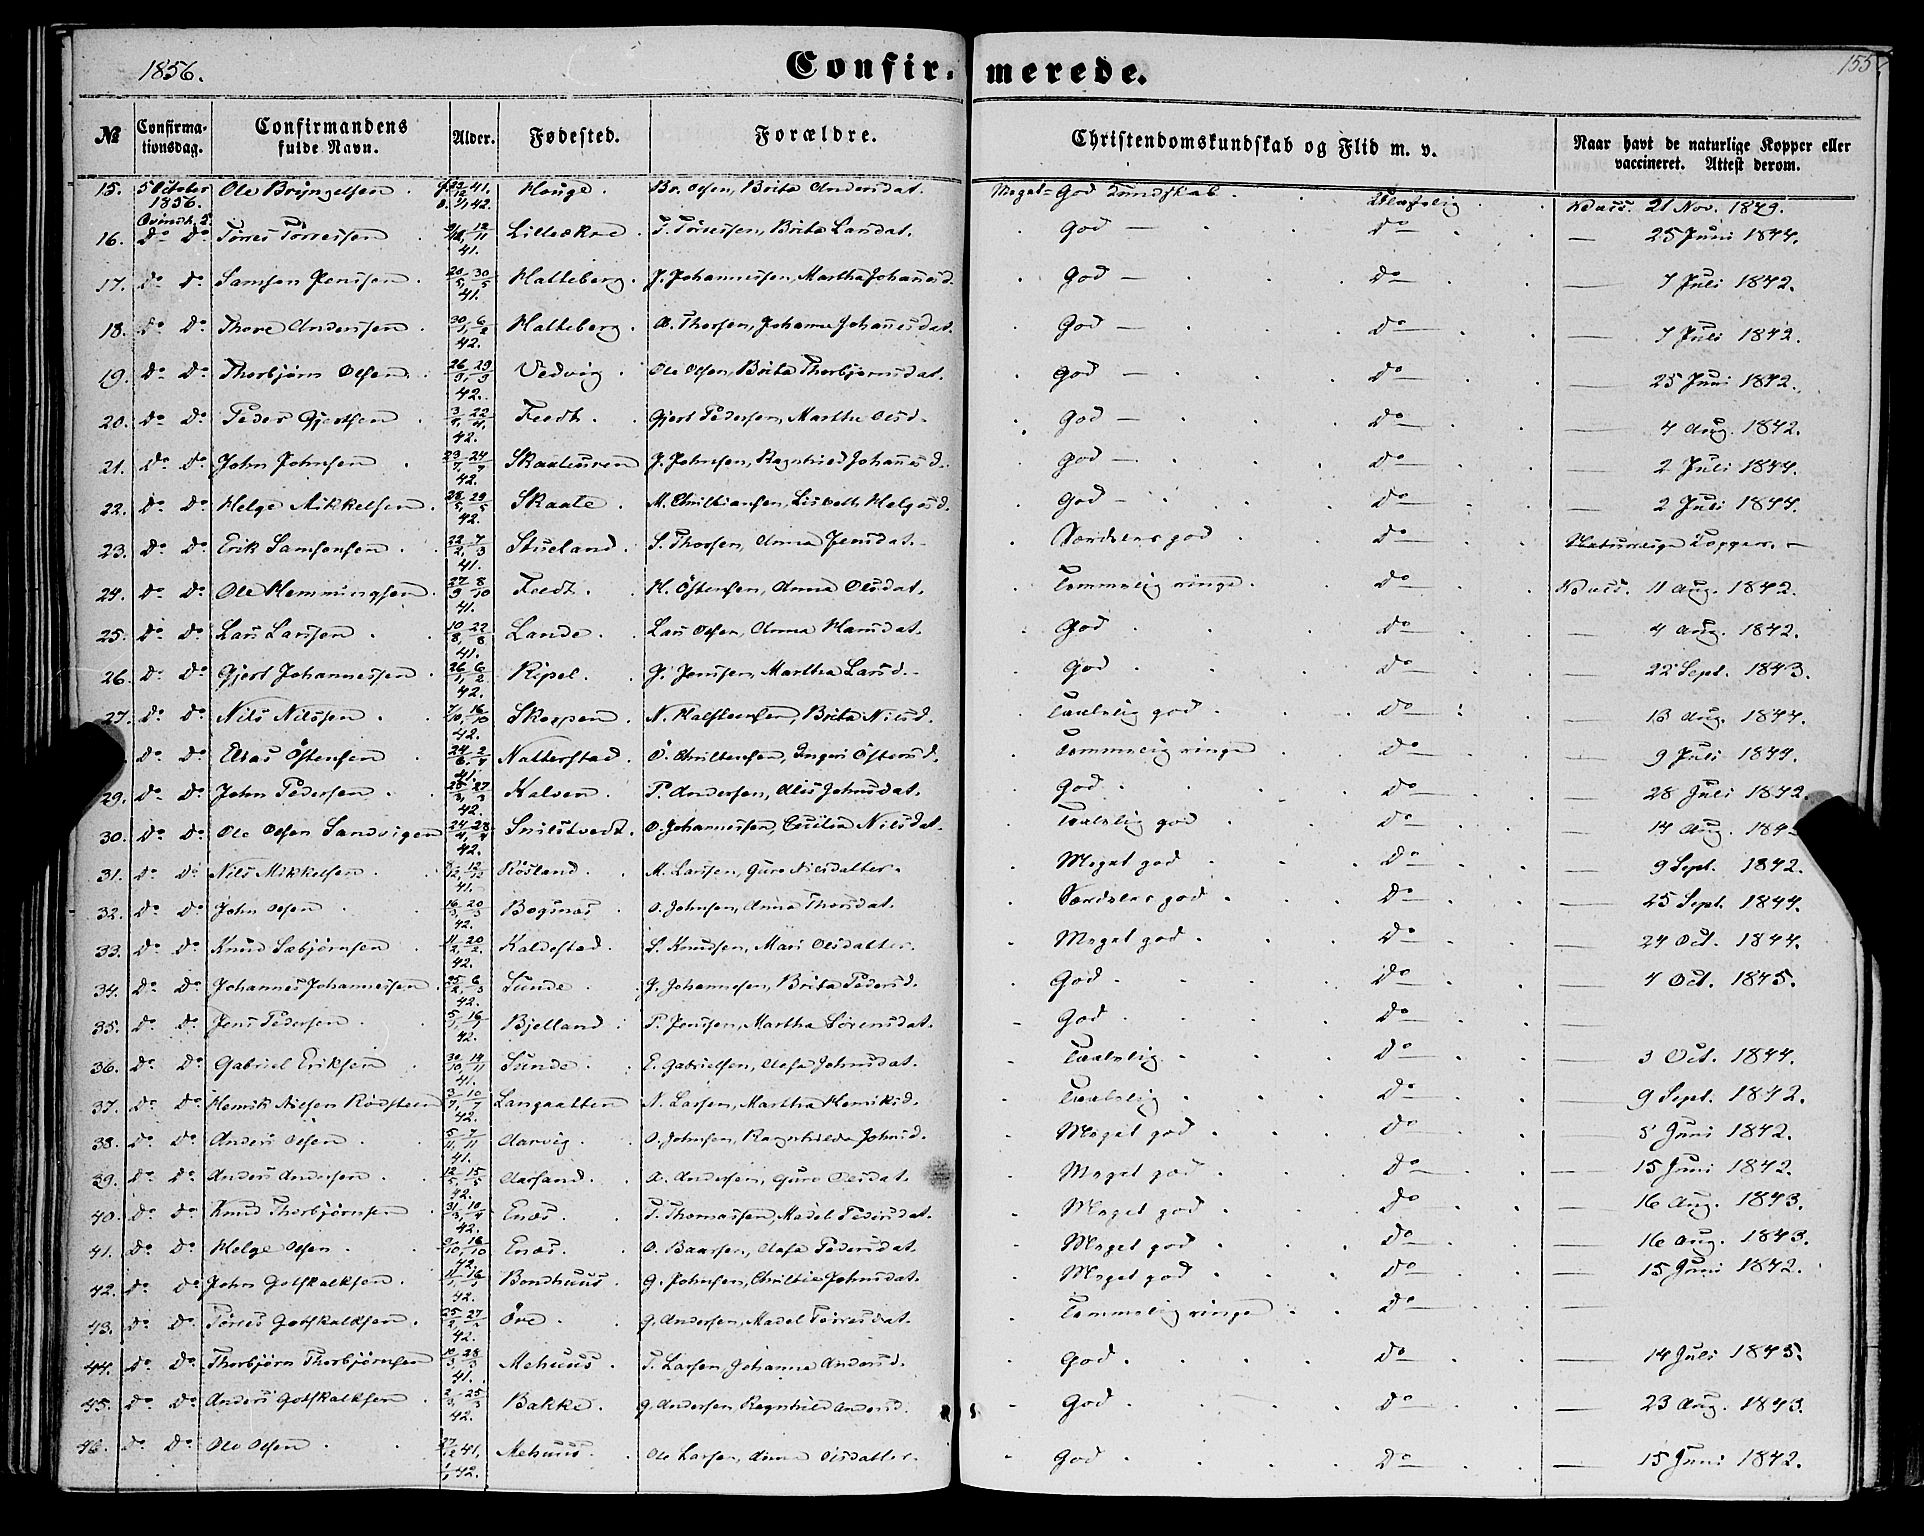 1856.
Confirmerede.
155.
№ Confirmationsdag. Confirmandens fulde Navn. Alder. Fødested. Forældre. Christendomskundskab og Flid m. v. Naar havt de naturlige Kopper eller vaccineret. Attest derom.
15. 5 October 1856. Ole Bryngelsen f. 22/12 41. d. 1/1 42. Houge. Br. Olsen, Brita Andersdat. Meget- God Kundskab. Vacc. 21 Nov. 1849.
16. Do Do Tørres Tørressen 41. Lilleøkre T. Tørressen, Brita Larsdat. God — Do — 25 Juni 1844.
17. Do Do Samson Jenssen 20/5, 30/5 41. Hatteberg. J. Johannessen, Martha Johannesd. God — Do — 7 Juli 1842.
18. Do Do Thore Anderssen 30/1, 6/2 42. Hatteberg. A. Thorsen, Johanna Johannesdat. God — Do — 7 Juli 1842.
19. Do Do Thorbjørn Olsen 26/3, 29/3 42. Vedvig. Ole Olsen, Brita Thorbjørnsdat. God — Do — 25 Juni 1842.
20. Do Do Peder Gjertsen 3/4, 22/4 42. Feedt. Gjert Pedersen, Martha Olsd. God — Do — 4 Aug. 1842.
21. Do Do John Johnsen 23/7, 24/7 42. Skaaleuren J. Johnsen, Ragnhild Johannesd. God — Do — 2 Juli 1844.
22. Do Do Helge Mikkelsen 28/5, 29/5 42. Skaale. M. Christiansen, Lisbeth Helgesd. God — Do — 2 Juli 1844.
23. Do Do Erik Samsonsen 22/2, 7/3 41. Stueland. S. Thorsen, Anna Jensdat. Særdeles god Do Naturlige Kopper. —
24. Do Do Ole Hemmingsen 27/9, 8/10 41. Feedt. H. Östensen, Anna Olsdat. Temmelig ringe. Do Vacc. 11 Aug. 1842.
25. Do Do Lars Larssen 10/8, 22/8 41. Lande. Lars Olsen, Anna Hansdat. God Do — 4 Aug. 1842.
26. Do Do Gjert Johannessen 26/1, 6/2 42. Ripel. J. Jenssen, Martha Larsd. God Do — 22 Sept. 1843.
27. Do Do Nils Nilssen 7/10, 16/10 42. Skorpen. N. Halsteensen, Brita Nilsd. Taalelig god Do — 13 Aug. 1844.
Do Do Elias Östensen 41. Natterstad. Ö. Christensen, Ingeri Östensd. Temmelig ringe Do — 9 Juli 1844.
29. Do Do John Pedersen 25/3, 27/3 42. Kalven. P. Andersen, Alis Johnsdat. God Do — 28 Juli 1842.
30. Do Do Ole Olsen Sandvigen 24/4, 28/4 42. Snilstvedt. O. Johannessen, Cecilia Nilsdat. Taalelig god Do — 14 Aug. 184
31. Do Do Nils Mikkelsen 41. Røsland. M. Larssen, Guro Nilsdatter. Meget god Do — 9 Sept. 1842.
32. Do Do John Olsen 16/3, 20/3 42. Bogsnæs. O. Johnsen, Anna Thorsdat. Særdeles god Do — 25 Sept. 1844.
33. Do Do Knud Sæbjørnsen 11/2, 20/2 42. Kaldestad. S. Knudsen, Mari Olsdatter. Meget god Do — 24 Oct. 1844.
34. Do Do Johannes Johannessen 25/2, 6/3 42. Sunde. J. Johannesen, Brita Pedersd. God Do — 4 Oct. 1845.
35. Do Do Jens Pedersen 5/1, 16/1 42. Bjelland. P. Jenssen, Martha Sørensdat. God Do —
36. Do Do Gabriel Eriksen 30/10, 14/11 41. Sunde. E. Gabrielsen, Aasa Johnsdat. Taalelig. Do — 3 Oct. 1844.
37. Do Do Henrik Nielsen Rødsteen 3/7, 10/7 42. Langaatten N. Larsen, Martha Henriksd. Taalelig. Do — 9 Sept. 1842.
38. Do Do Anders Olsen 5/11, 7/11 41. Aarvig. O. Johnsen, Ragnhilda Johnsd. Meget god Do — 5 Juni 1842.
39. Do Do Anders Andersen 12/5, 15/5 42. Aarsand. A. Andersen, Guro Olsdat. Meget god Do — 15 Juni 1842.
40. Do Do Knud Thorbjørnsen 31/3, 10/4 42. Enæs. T. Thomassen, Madel Pedersdat. Meget god Do — 16 Aug. 1843.
41. Do Do Helge Olsen 9/10, 16/10 42. Enæs. O. Baarsen, Aasa Pedersdat. Meget god Do — 16 Aug. 1843.
42. Do Do John Gotskalksen 42. Bondhuus. G. Johnsen, Christie Johnsdat. Meget god Do — 15 Juni 1842.
43. Do Do Tørres Gotskalksen 42. Öre. G. Andersen, Madel Tørresdat. Temmelig ringe Do —
44. Do Do Thorbjørn Thorbjørnsen 10/3, 28/3 41. Mehuus. T. Larsen, Johanna Andersd. God Do — 14 Juli 1845.
45. Do Do Anders Gotskalksen 42. Bakke. G. Andersen Ragnhild Andersd. God Do — 23 Aug. 1843.
46. Do Do Ole Olsen 27/12 41, 1/1 42. Mehuus. Ole Larsen, Anna Olsdatter. God Do — 15 Juni 1842.